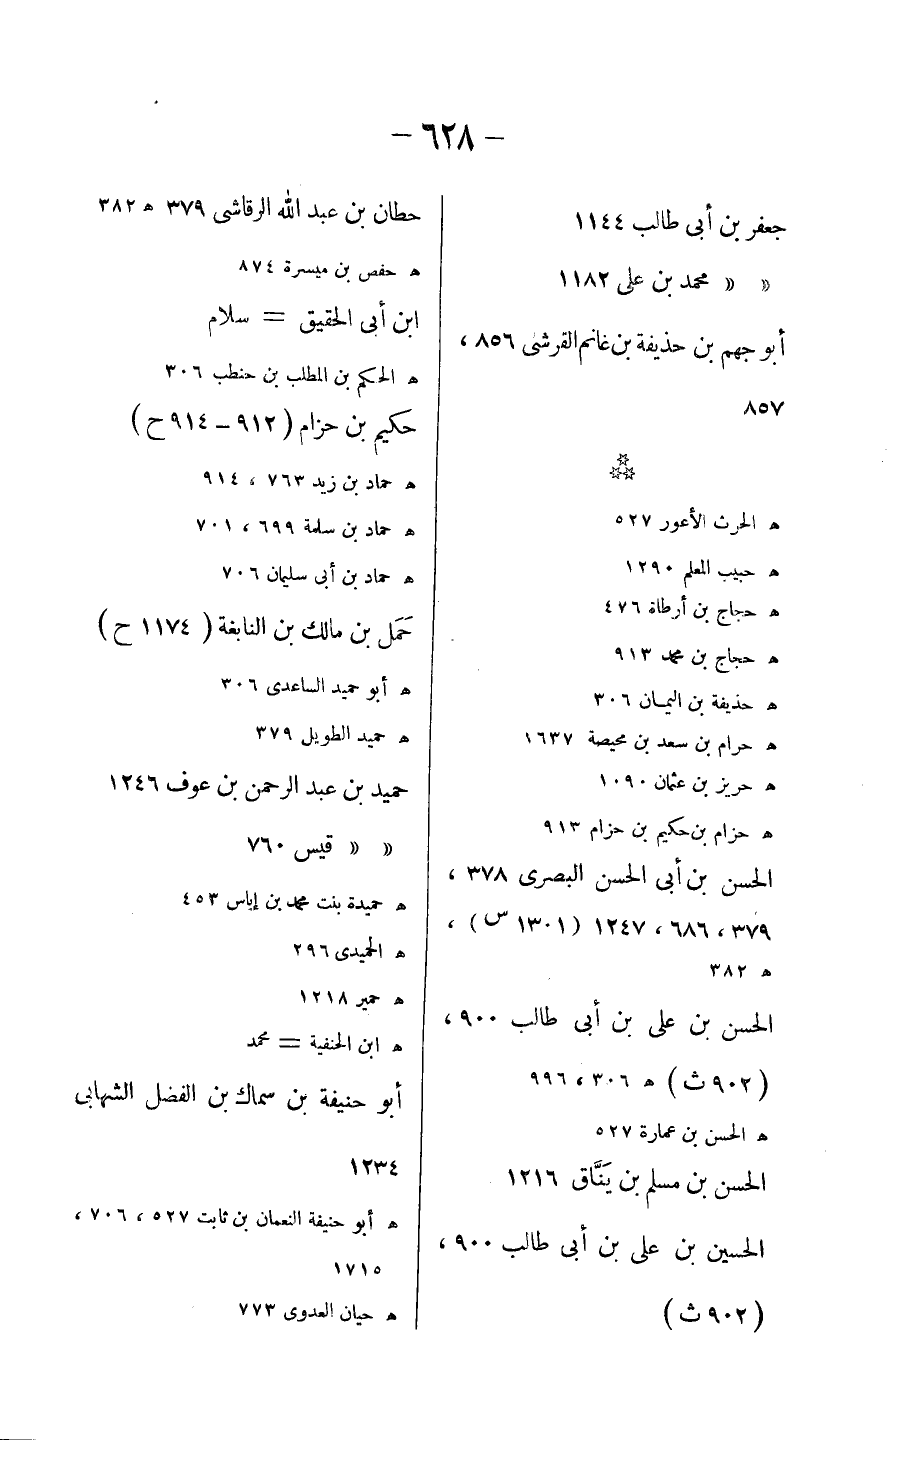 — ٦٢٨ —
جعفر بن أبى طالب ١١٤٤
« « محمد بن على ١١٨٢
أبو جهم بن حذيفة بن غانم القرشى ٨٥٦ ،
٨٥٧
ﻫ الحرث الأعور ٥٢٧
ﻫ حبيب المعلم ١٢٩٠
ﻫ حجاج بن أرطاة ٤٧٦
ﻫ حجاج بن محمد ٩١٣
ﻫ حذيفة بن اليمان ٣٠٦
ﻫ حرام بن سعد بن محيصة ١٦٣٧
ﻫ حريز بن عثمان ١٠٩٠
ﻫ حزام بن حكيم بن حزام ٩١٣
الحسن بن أبى الحسن البصرى ٣٧٨ ،
٣٧٩ ، ٦٨٦ ، ١٢٤٧ (١٣٠١ س) ،
ﻫ ٣٨٢
الحسن بن على بن أبى طالب ٩٠٠ ،
(٩٠٢ ث) ﻫ ٣٠٦ ، ٩٩٦
ﻫ الحسن بن عمارة ٥٢٧
الحسن بن مسلم بن يَنَّاق ١٢١٦
الحسين بن على بن أبى طالب ٩٠٠ ،
(٩٠٢ ث)
حطان بن عبد الله الرقاشى ٣٧٩ ﻫ ٣٨٢
ﻫ حفص بن ميسرة ٨٧٤
ابن أبى الحقيق = سلام
ﻫ الحكم بن المطلب بن حنطب ٣٠٦
حكيم بن حزام (٩١٢ – ٩١٤ ح)
ﻫ حماد بن زيد ٧٦٣ ، ٩١٤
ﻫ حماد بن سلمة ٦٩٩ ، ٧٠١
ﻫ حماد بن أبى سليمان ٧٠٦
حَمَل بن مالك بن النابغة (١١٧٤ ح)
ﻫ أبو حميد الساعدى ٣٠٦
ﻫ حميد الطويل ٣٧٩
حميد بن عبد الرحمن بن عوف ١٢٤٦
« « قيس ٧٦٠
ﻫ حميدة بنت محمد بن إياس ٤٥٣
ﻫ الحميدى ٢٩٦
ﻫ حمير ١٢١٨
ﻫ ابن الحنفية = محمد
أبو حنيفة بن سماك بن الفضل الشهابى
١٢٣٤
ﻫ أبو حنيفة النعمان بن ثابت ٥٢٧ ، ٧٠٦ ،
١٧١٥
ﻫ حيان العدوى ٧٧٣